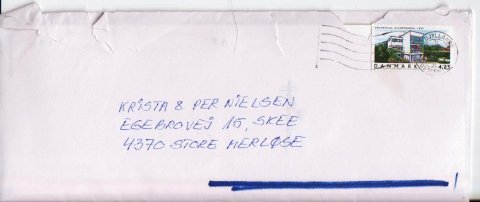 DANMARK 4.25
KRISTA & PER NIELSEN
EGEBROVEJ 15, SKEE
4370 STORE MERLØSE